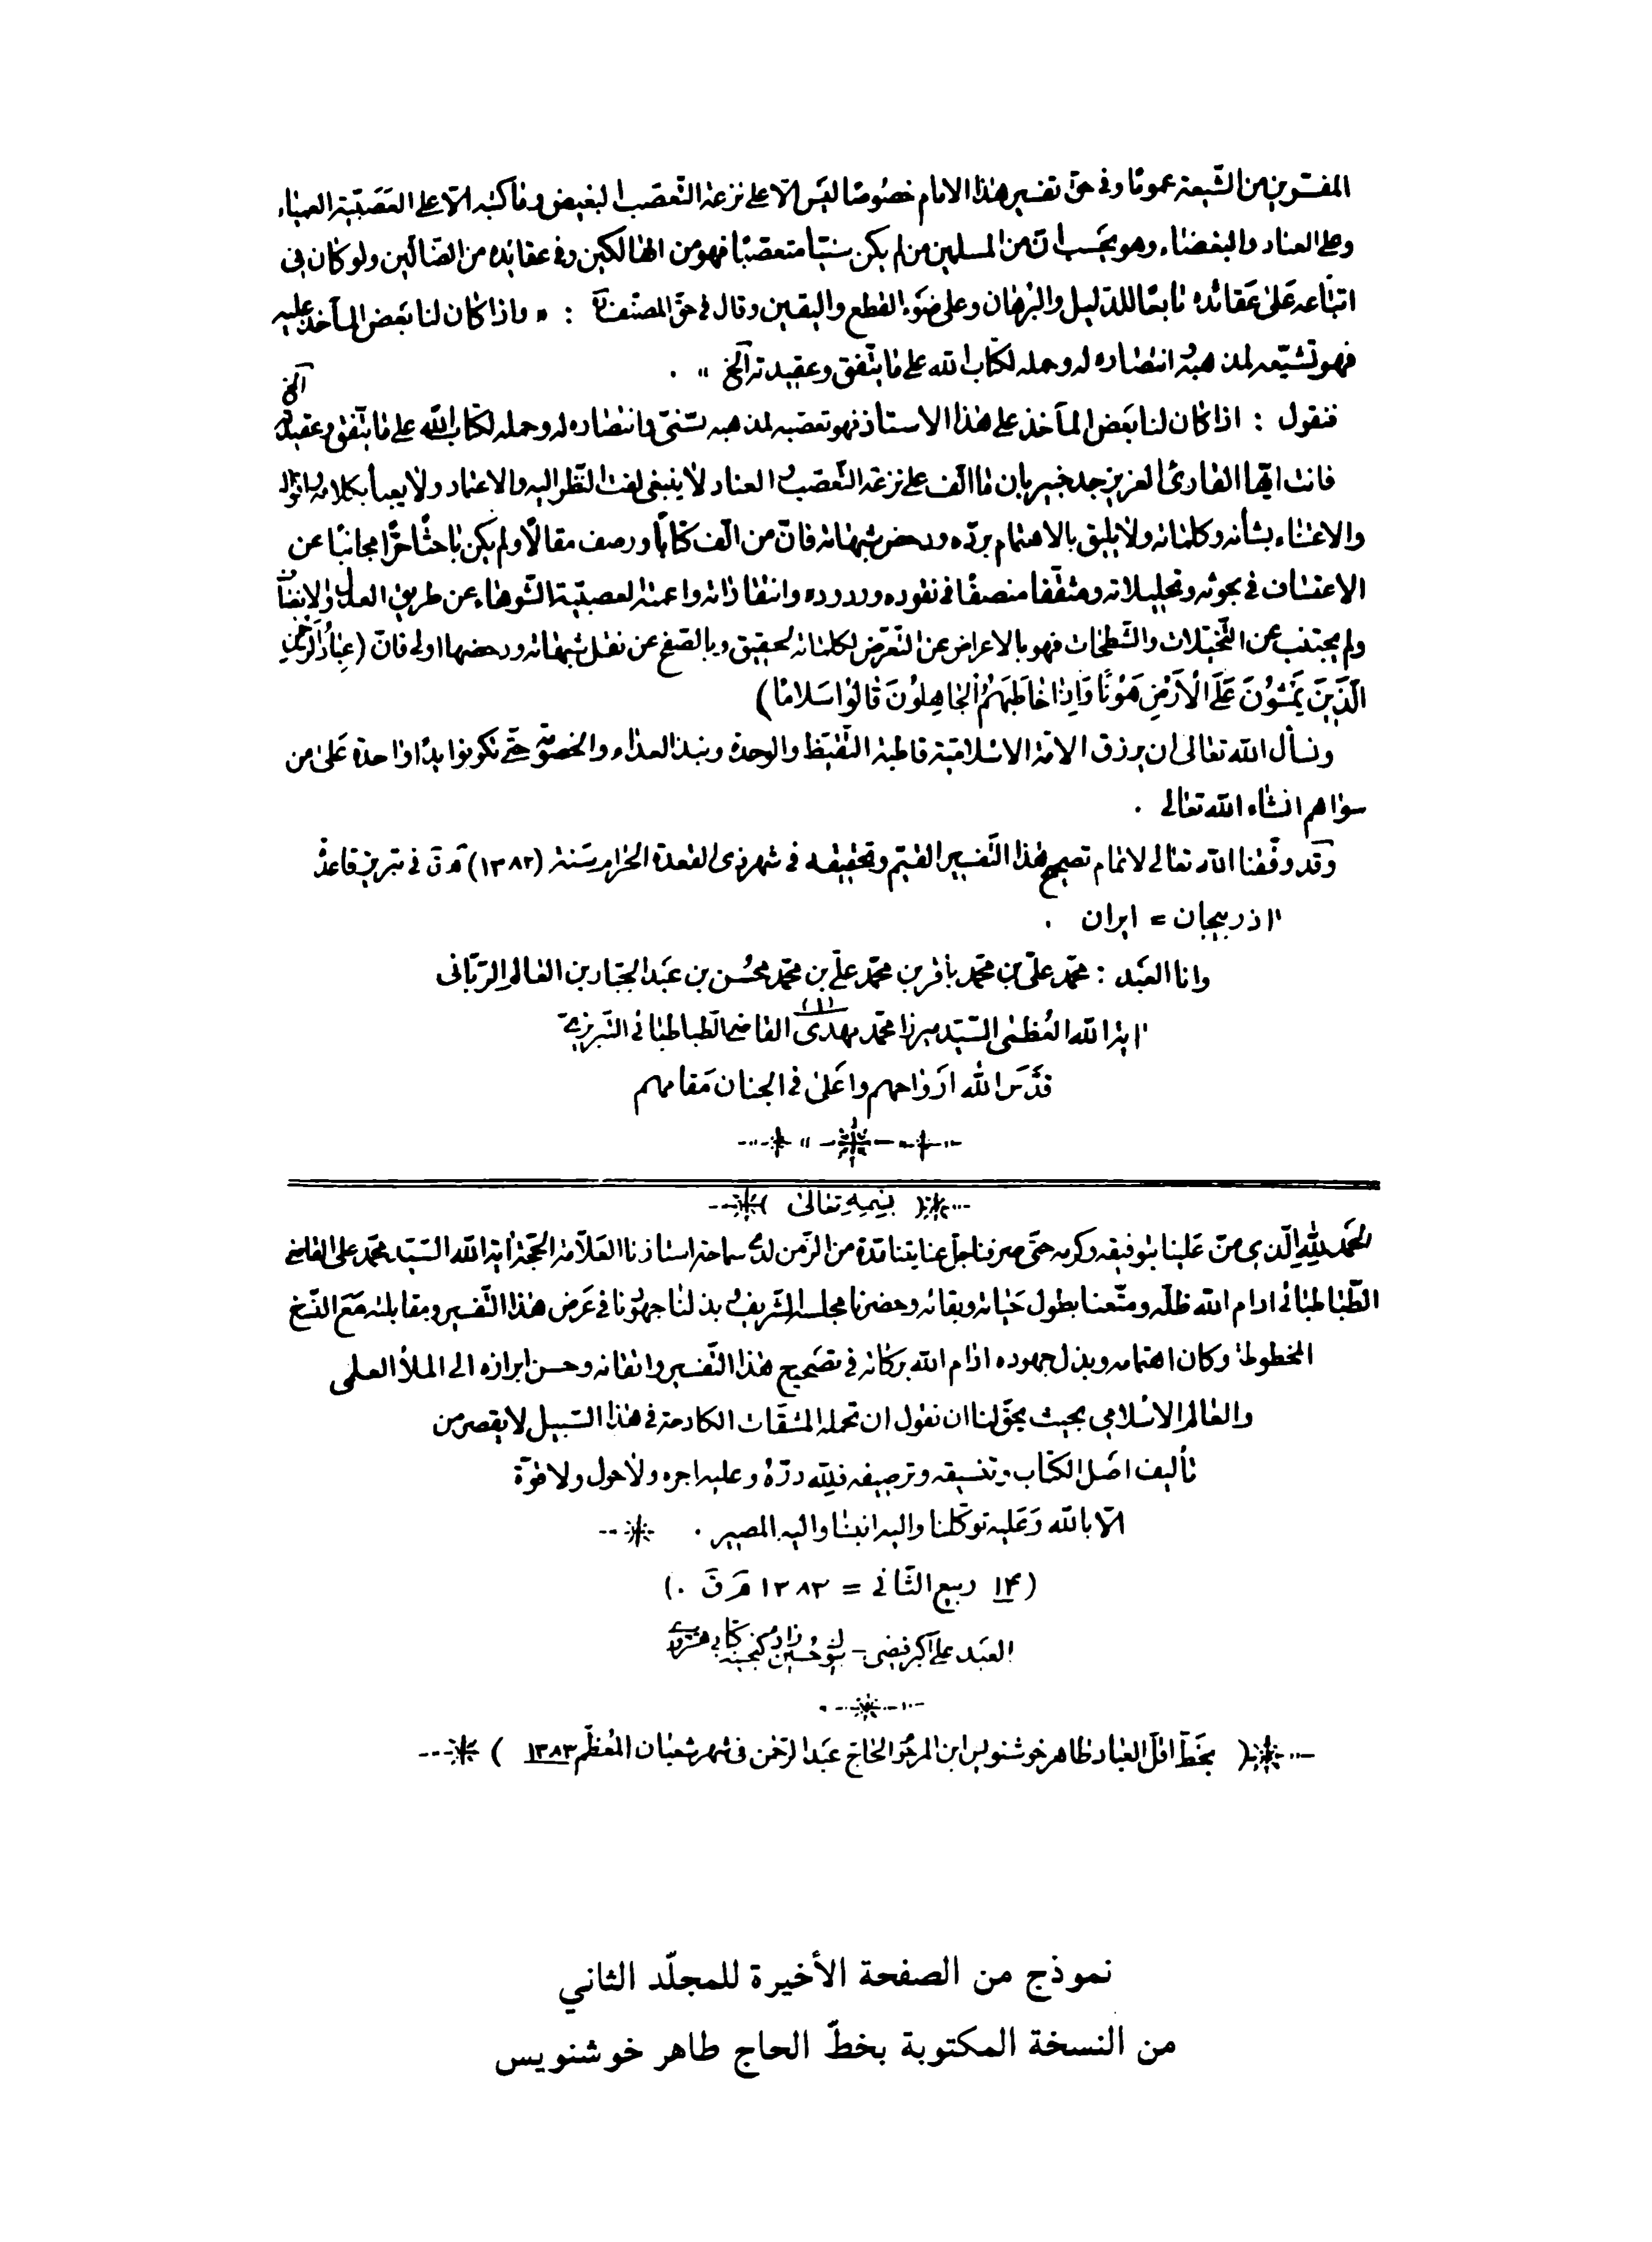 المفسّرين من الشّيعة عمومًا وفى حقّ تفسير هذا الامام خصُوصًا ليَس الّا على نزعة التّعصّب البغيض وما كتبه الّا على العَصَبيّة العمياء
وعلى العناد والبغضاء وهو يحسَب انّ من المسلمين من لم يكن سنيّا متعصّبًا فهو من الهالكين وفى عقائده من الضّالّين ولو كان فى
اتباعه عَلىٰ عَقائده تابعًا للدّليل والبُرهان وعلى ضوَء القطع واليقين وقال فى حقّ المصنّف : « واذا كان لنا بعَض المآخذ عليه
فهو تشيّعه لمذهبه وانتصاره له وحمله لكتاب الله على ما يتّفق وعقيدته الخ » .
فنقول : اذا كان لنا بعَض المآخذ على هذا الاستاذ فهو تعصّبه لمذهبه تسنّنى وانتصاره له وحمله لكتاب الله على ما يتّفق وعقيدته الخ
فانت ايّها القارئ العزيز جد خبير بان ما الّف على نزعة التّعصّب والعناد لا ينبغى لفت النّظر اليه والاعتماد ولا يعبأ بكلامه
والاعتناء بشأنه وكلماته ولا يليق بالاهتمام بردّه ودحض شبهاته فانّ من الّف كتابًا ورصف مقالًا ولم يكن باحثًا حرًّا مجانبًا عن
الاعتساف فى بحوثه وتحليلاته ومثقّفا منصفًا فى نقوده وردوده وانتقاداته واعمته العصبيّة الشّوهاء عن طريق العدل والانصاف
ولم يجتنب عن التّخيّلات والشّطحات فهو بالاعراض عن التّعرّض لكلماته لحقيق وبالصّفح عن نقل شبهاته ودحضها اولى فانّ (عِبادُ الرَّحمٰنِ
الَّذينَ يَمشُونَ عَلَى الْاَرضِ هَوْنًا وَاِذا خاطَبَهُمُ الجاهِلُونَ قالُوا سَلامًا)
ونسأل الله تعالى ان يرزق الامّة الاسلاميّة قاطبة التّيقّظ والوحدة وينبذ العداء والخصومة حتّى تكونوا يدًا واحدة عَلىٰ من
سواهم انشاء الله تعالى .
وقد وفّقنا الله تعالى لاتمام تصحيح هذا التّفسير القيّم وتحقيقه فى شهر ذى القعدة الحرام سَنة (١٣٨٢) ه ق فى تبريز قاعدة
اذربيجان = ايران .
وانا العَبد : محمّد علىّ بن محمّد باقر بن محمّد على بن محمّد محسُن بن عَبد الجبّار بن العالم الرّبّانى
اية الله العُظمىٰ السّيّد ميرزا محمّد مهدى (١) القاضى الطباطبائى التّبريزى
قدَّس الله ارَواحهم واعَلىٰ فى الجنان مَقامهم
( بِسِمهِ تعالىٰ )
الحمَد لِلّهِ الّذى منّ عَلينا بتوفيقه وكرمه حتّى صرفنا جلّ عنايتنا مدّة من الزّمن لدى سماحة استاذنا العَلّامة الحجّة اية الله السّيّد محمّد على القاضى
الطّباطبائى ادام الله ظلّه ومتّعنا بطول حَياته وبقائه وحضرنا مجلسه الشّريف وبذلنا جهودنا فى عَرض هذا التّفسير ومقابلته مَعَ النّسخ
المخطوطة وكان اهتمامه وبذل جهوده ادام الله بركاته فى تصَحيح هذا التّفسير واتقانه وحسن ابرازه الى الملأ العلمى
والعالم الاسْلامي بحيث يحقّ لنا ان نقول ان تحمله المشقّات الكادحة فى هذا السّبيل لا يقصر من
تأليف اصَل الكتاب وتنسيقه وترصيفه فللّه درّهُ وعليه اجره ولا حول ولا قوّة
الّا بالله وَعَليه توكّلنا واليه انبنا واليه المصير .
(۱۴ ربيع الثّانى = ١٣٨٣ ه ق .)
العبَد على اكبر فيضى –
( بخَطّ اقلّ العباد طاهر خوشنويس ابن المرحُوم الحاجّ عبَد الرّحمٰن فى شهر شعبان المُعظّم ١٣٨٣ )
نموذج من الصفحة الأخيرة للمجلّد الثاني
من النسخة المكتوبة بخطّ الحاج طاهر خوشنويس